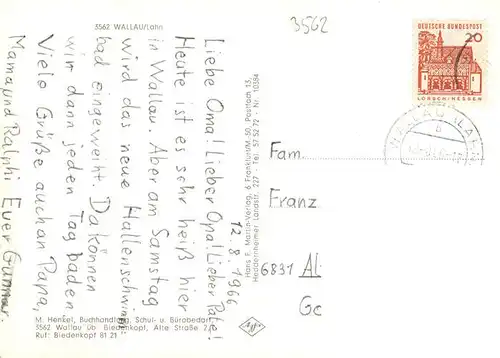 3562 WALLAU/Lahn
3562
12.8.1966
Liebe Oma! Lieber Opa! Lieber Pate!
Heute ist es sehr heiß hier
in Wallau. Aber am Samstag
wird das neue Hallenschwimm
bad eingeweiht. Da können
wir dann jeden Tag baden
Viele Grüße auch an Papa,
Mama und Ralph! Euer Gunnar.
M. Henkel, Buchhandlung, Schul- u. Bürobedarf
3562 Wallau üb. Biedenkopf, Alte Straße 2
Ruf: Biedenkopf 81 21
Hans F. Martin-Verlag, 6 Frankfurt/M-50, Postfach 13,
Heddernheimer Landstr. 227 - Tel 57 52 72 - Nr. 10384
DEUTSCHE BUNDESPOST
20
LORSCH/HESSEN
WALLAU (LAHN)
b
Fam.
Franz
6831 Al
Ge